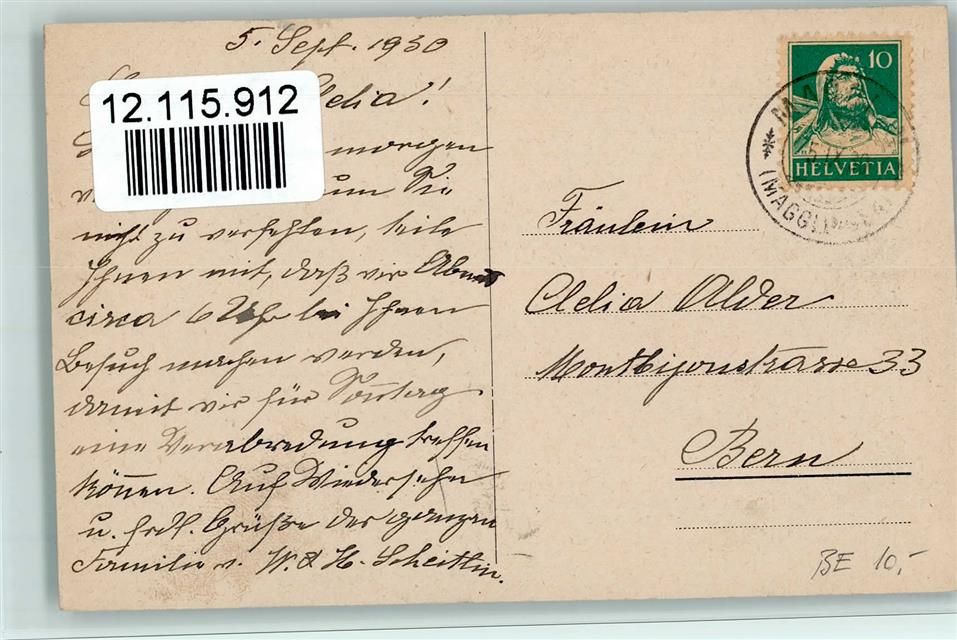 5. Sept. 1930
Clelia!
12.115.912
morgen
um Sie
nicht zu verfehlen, teile
Ihnen mit, daß wir Abends
circa 6 Uhr bei Ihnen
Besuch machen werden,
damit wir für Sonntag
eine Verabredung treffen
können. Auf Wiedersehn
u. frdl. Grüße der ganzen
Familie v. W. & H. Scheitlin.
10
HELVETIA
(MAGGLINGEN)
Fräulein
Clelia Alder
Montbijoustrasse 33
Bern
BE 10,-